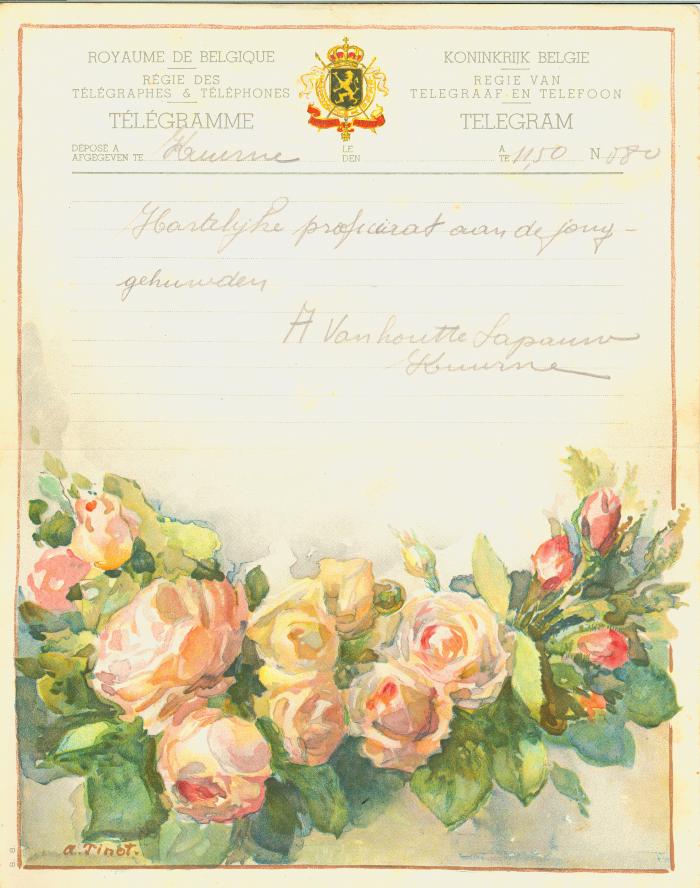 ROYAUME DE BELGIQUE
RÉGIE DES
TÉLÉGRAPHES & TÉLÉPHONES
TÉLÉGRAMME
KONINKRIJK BELGIE
REGIE VAN
TELEGRAAF EN TELEFOON
TELEGRAM
DÉPOSÉ A
AFGEGEVEN TE Kuurne
LE
DEN
A
TE 11,50 N 080
Hartelijke proficiat aan de jong-
gehuwden
A Vanhoutte Lapauw
Kuurne
A. Pinot.
B. B.